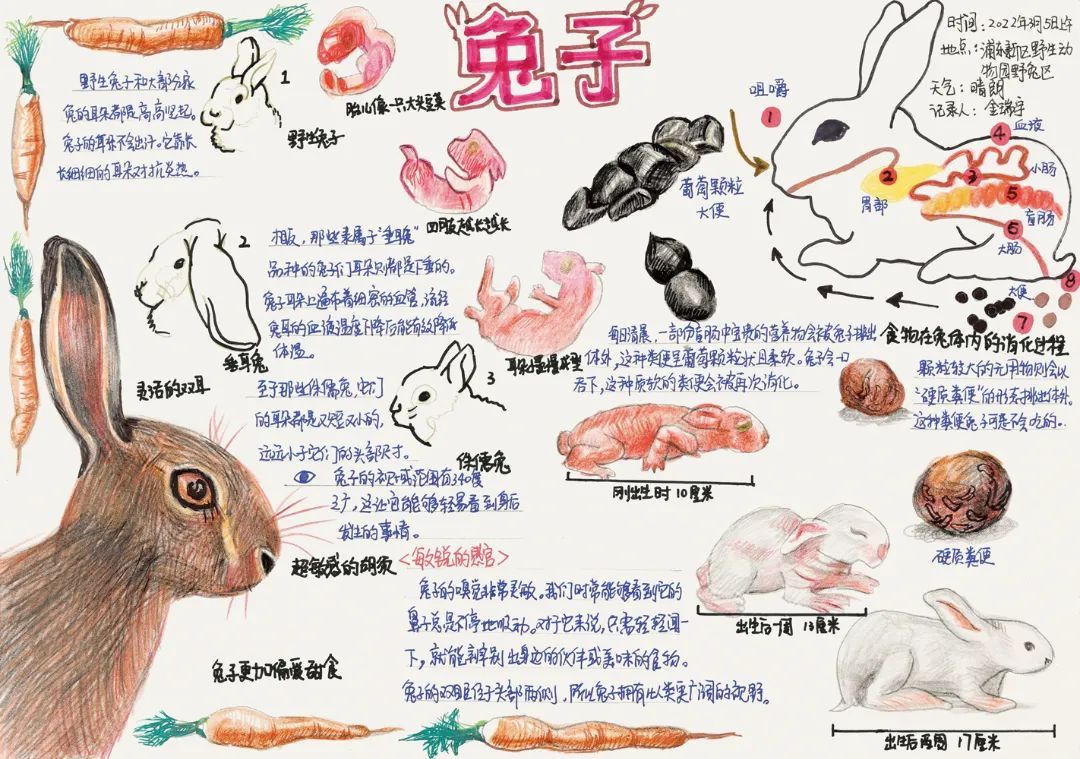 兔子
时间：2022年3月5日上午
地点：浦东新区野生动
物园野兔区
天气：晴朗
记录人：金瑞宇
野生兔子和大部分家
兔的耳朵都是高高竖起。
兔子的耳朵不会出汗。它靠长
长细细的耳朵对抗炎热。
1
野生兔子
胎儿像一只大米豆荚
四肢越长越长
耳朵慢慢成型
2
垂耳兔
相反，那些隶属于“垂耳兔”
品种的兔子们耳朵则都是下垂的。
兔子耳朵上遍布着细密的血管，流经
兔耳的血液温度下降后能有效降低
体温。
灵活的双耳
3
侏儒兔
至于那些侏儒兔，它们
的耳朵都是又短又小的，
远远小于它们的头部尺寸。
兔子的视力或范围有340度
之广，这让它能够轻易看到身后
发生的事情。
超敏感的胡须
<敏锐的感官>
兔子的嗅觉非常灵敏。我们时常能够看到它的
鼻子总是不停地吸动。对于它来说，只需轻轻闻一
下，就能辨别出身边的伙伴或美味的食物。
兔子的双眼位于头部两侧，所以兔子拥有比人类更广阔的视野。
兔子更加偏爱甜食
葡萄颗粒
大便
每日清晨，一部分盲肠中宝贵的营养物会被兔子排出
体外，这种粪便呈葡萄颗粒状且柔软。兔子会一口
吞下，这种质软的粪便会被再次消化。
咀嚼
1
2
胃部
3
小肠
4
血液
5
盲肠
6
大肠
7
8
大便
食物在兔体内的消化过程
颗粒较大的无用物则会以
“硬质粪便”的形态排出体外。
这种粪便兔子可是不会吃的。
硬质粪便
刚出生时10厘米
出生后一周 13厘米
出生后两周 17厘米